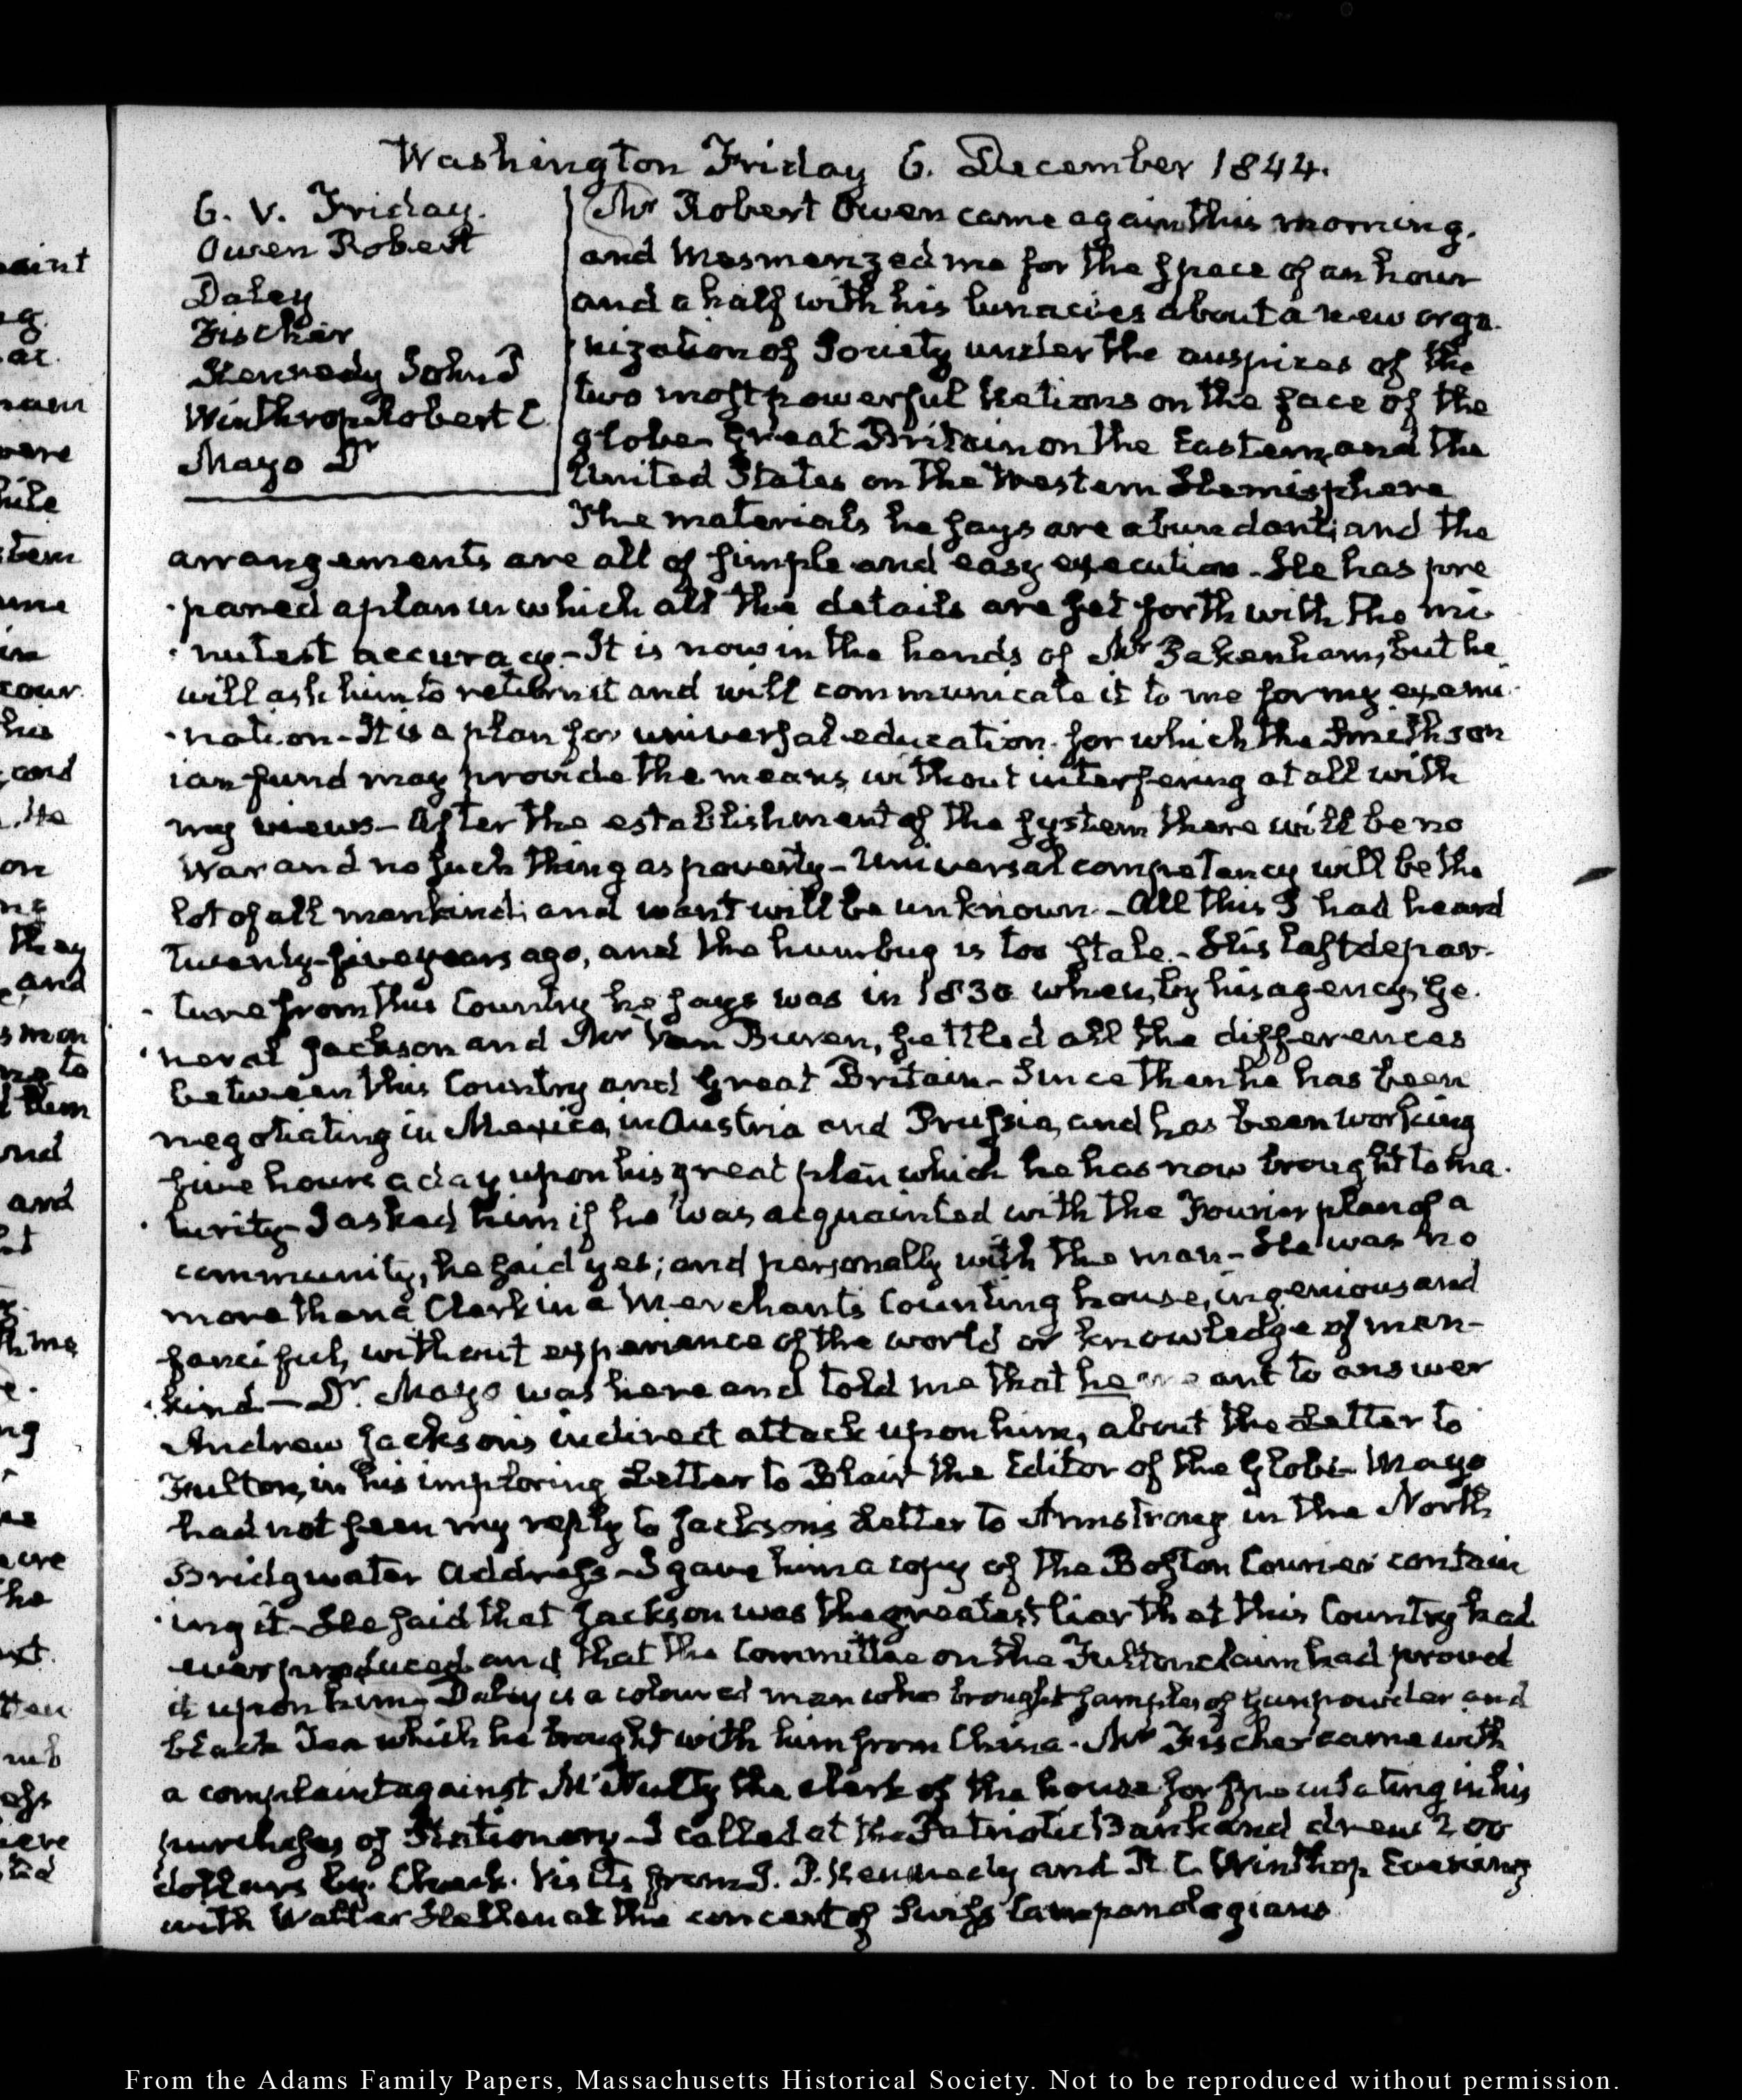 Washington Friday 6. December 1844.
6. V. Friday.
Owen Robert
Daley
Fischer
Kennedy John P
Winthrop Robert C
Mayo Dr
Mr Robert Owen came again this morning.
and Mesmerized me for the space of an hour
and a half with his lunacies about a new orga-
nization of Society under the auspices of the
two most powerful Nations on the face of the
globe Great Britain on the Eastern, and the
United States on the Western Hemisphere
The materials he says are abundant; and the
arrangements are all of simple and easy execution - He has pre
-pared a plan in which all the details are set forth with the mi-
-nutest accuracy - It is now in the hands of Mr Pakenham, but he
will ask him to return it and will communicate it to me for my exami-
-nation - It is a plan for universal education for which the Smithson
ian fund may provide the means, without interfering at all with
my views - After the establishment of the system there will be no
War and no such thing as poverty - Universal competency will be the
lot of all mankind; and want will be unknown - All this I had heard
twenty-five years ago, and the humbug is too stale - His last depar-
-ture from this Country he says was in 1830 when, by his agency, Ge-
-neral Jackson and Mr Van Buren, settled all the differences
between this Country and Great Britain - Since then he has been
negotiating in Mexico, in Austria and Prussia, and has been working
five hours a day upon his great plan which he has now brought to ma-
-turity - I asked him if he was acquainted with the Fourier plan of a
community, he said yes; and personally with the man - He was no
more than a Clerk in a Merchants Counting house, ingenious and
fanciful, without experience of the world or knowledge of man-
-kind - Dr. Mayo was here and told me that he meant to answer
Andrew Jacksons indirect attack upon him, about the Letter to
Fulton, in his imploring Letter to Blair the Editor of the Globe - Mayo
had not seen my reply to Jacksons Letter to Armstrong in the North
Bridgwater Address - I gave him a copy of the Boston Courier contain
-ing it - He said that Jackson was the greatest liar that this Country had
ever produced and that the Committee on the Fulton claim had proved
it upon him - Daley is a coloured man who brought samples of Gunpowder and
black Tea which he brought with him from China. Mr Fischer came with
a complaint against McNulty the clerk of the house for speculating in his
purchases of Stationery - I called at the Patriotic Bank and drew 200
dollars by Check. Visits from J. P. Kennedy and R. C. Winthrop Evening
with Walter at the concert of Swiss Campanologians
aint
g.
at.
nam
were
hile
tem
une
in
cour
his
and
He
on
ng
they
and
man
to
them
and
and
me
ng
he
sure
she
From the Adams Family Papers, Massachusetts Historical Society. Not to be reproduced without permission.